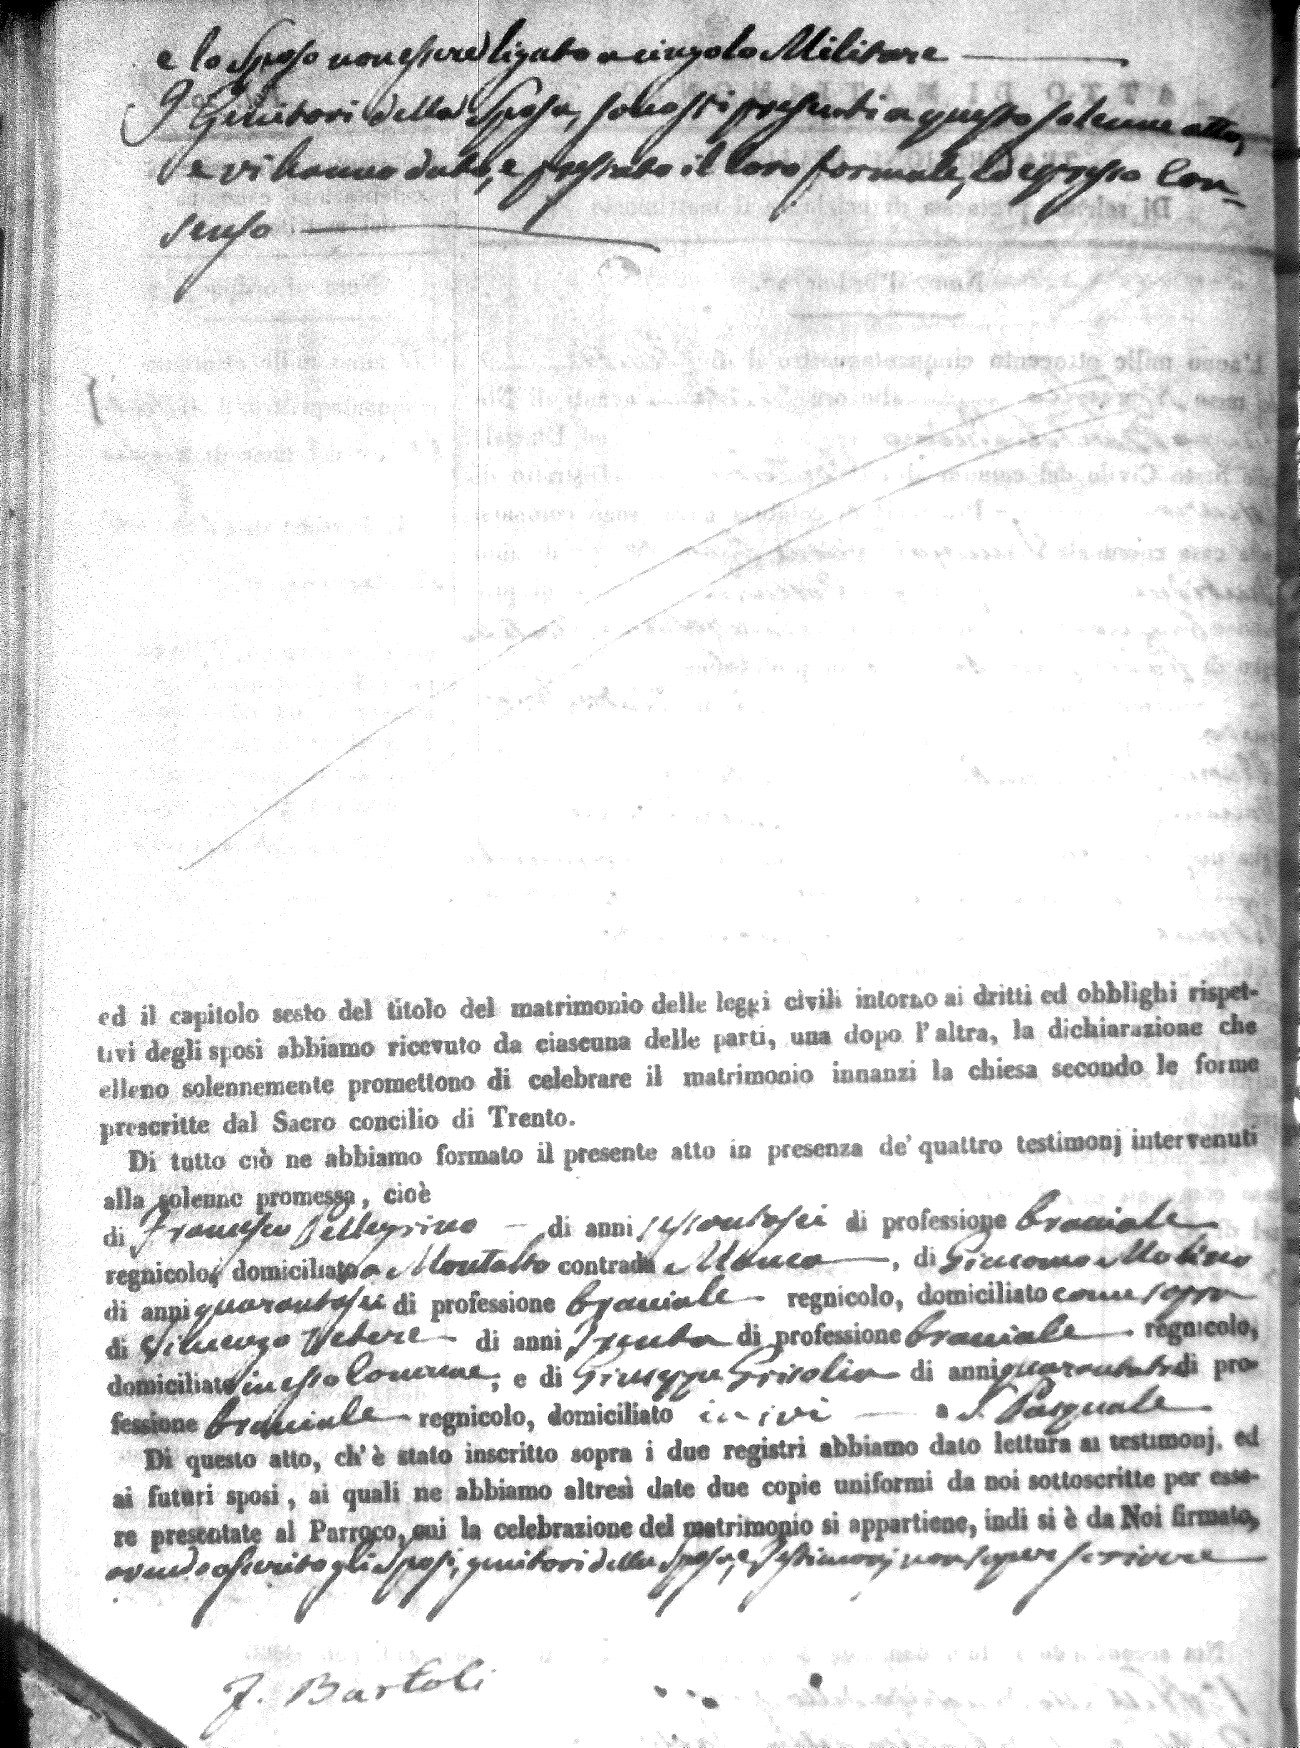 e lo Sposo non essere ligato a cingolo Militare
I Genitori della Sposa, sonosi presenti a questo solenne atto,
e vi hanno dato, e prestato il loro formale, ed espresso Con-
senso
ed il capitolo sesto del titolo del matrimonio delle leggi civili intorno ai dritti ed obblighi rispet-
tivi degli sposi abbiamo ricevuto da ciascuna delle parti, una dopo l'altra, la dichiarazione che
elleno solennemente promettono di celebrare il matrimonio innanzi la chiesa secondo le forme
prescritte dal Sacro concilio di Trento.
Di tutto ciò ne abbiamo formato il presente atto in presenza de' quattro testimonj intervenuti
alla solenne promessa, cioè
di Francesco Pellegrino di anni sessantasei di professione bracciale
regnicolo, domiciliato a Montalto contrada di Giacomo Molino
di anni quarantasei di professione bracciale regnicolo, domiciliato come sopra
di Vincenzo Vetere di anni trenta di professione bracciale regnicolo,
domiciliato in esso Comune, e di Giuseppe Grisolia di anni quarantatre di pro-
fessione bracciale regnicolo, domiciliato ivi a S. Pasquale
Di questo atto, ch'è stato inscritto sopra i due registri abbiamo dato lettura ai testimonj, ed
ai futuri sposi, ai quali ne abbiamo altresì date due copie uniformi da noi sottoscritte per esse-
re presentate al Parroco, cui la celebrazione del matrimonio si appartiene, indi si è da Noi firmato,
avendo asserito gli Sposi, genitori della Sposa, e Testimonj non sapere scrivere
F. Bartoli